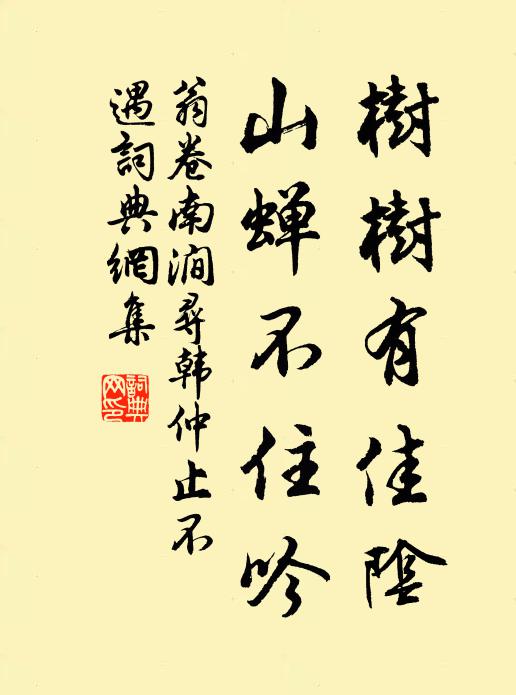 樹樹有佳陰
山蝉不住吟
翁卷南澗尋韩仲止不
遇詞典網集
詞典
网印